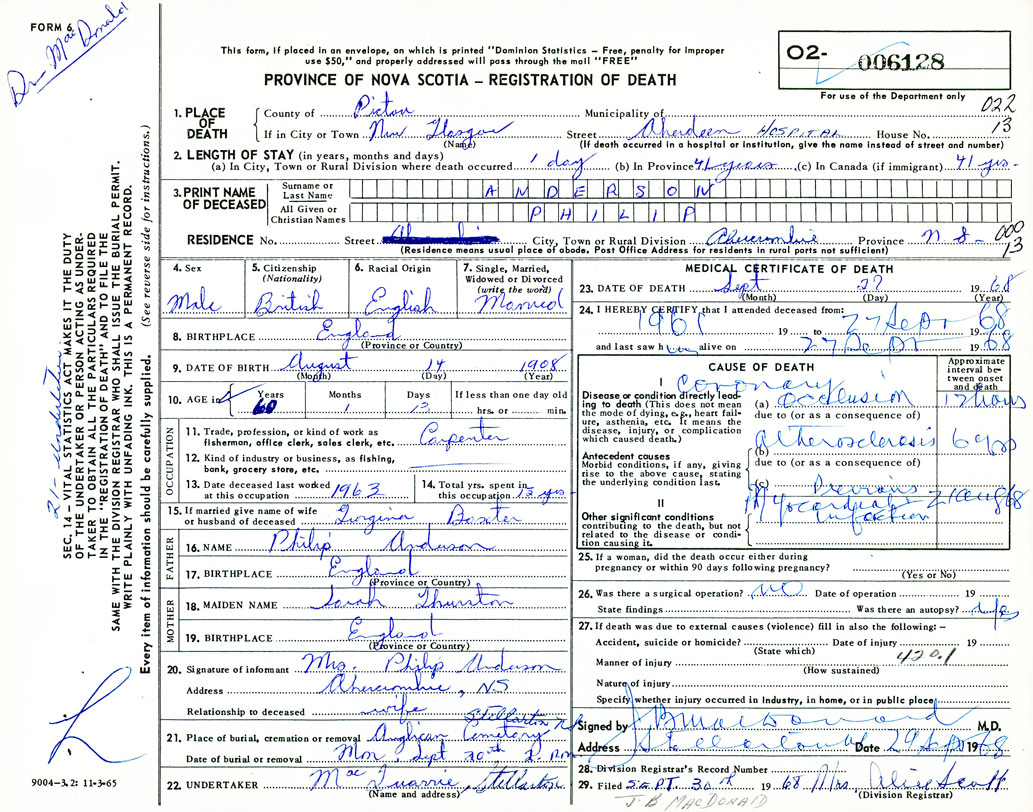 FORM 6
Dr MacDonald
This form, if placed in an envelope, on which is printed "Dominion Statistics – Free, penalty for improper
use $50," and properly addressed will pass through the mail "FREE"
PROVINCE OF NOVA SCOTIA – REGISTRATION OF DEATH
O2- 006128
For use of the Department only
022
13
1. PLACE OF DEATH
County of Pictou Municipality of
If in City or Town New Glasgow Street Aberdeen HOSPITAL House No.
(Name) (If death occurred in a hospital or institution, give the name instead of street and number)
2. LENGTH OF STAY (in years, months and days)
(a) In City, Town or Rural Division where death occurred 1 day (b) In Province 41 years (c) In Canada (if immigrant) 41 yrs.
3. PRINT NAME OF DECEASED
Surname or Last Name ANDERSON
All Given or Christian Names PHILIP
RESIDENCE No. Street City, Town or Rural Division Abercrombie Province N S - 000
13
(Residence means usual place of abode. Post Office Address for residents in rural parts not sufficient)
4. Sex Male
5. Citizenship (Nationality) British
6. Racial Origin English
7. Single, Married, Widowed or Divorced (write the word) Married
8. BIRTHPLACE England
(Province or Country)
9. DATE OF BIRTH August 14 1908
(Month) (Day) (Year)
10. AGE in Years 60 Months 1 Days 13 If less than one day old hrs. or min.
OCCUPATION
11. Trade, profession, or kind of work as fisherman, office clerk, sales clerk, etc. Carpenter
12. Kind of industry or business, as fishing, bank, grocery store, etc.
13. Date deceased last worked at this occupation 1963
14. Total yrs. spent in this occupation 15 yrs
15. If married give name of wife or husband of deceased Baxter
FATHER
16. NAME Philip Anderson
17. BIRTHPLACE England
(Province or Country)
MOTHER
18. MAIDEN NAME Sarah Thurston
19. BIRTHPLACE England
(Province or Country)
20. Signature of informant Mrs. Philip Anderson
Address Abercrombie, NS
Relationship to deceased wife
21. Place of burial, cremation or removal Anglican Cemetery Stellarton
Date of burial or removal Mon, Sept 30th 2 pm
22. UNDERTAKER MacQuarrie Stellarton
(Name and address)
MEDICAL CERTIFICATE OF DEATH
23. DATE OF DEATH Sept 27 1968
(Month) (Day) (Year)
24. I HEREBY CERTIFY that I attended deceased from:
1961 19 to 27 Sept 68
and last saw him alive on 27 Sept 1968
CAUSE OF DEATH
Approximate interval between onset and death
I
Disease or condition directly leading to death (This does not mean the mode of dying, e.g., heart failure, asthenia, etc. It means the disease, injury, or complication which caused death.)
(a) Coronary Occlusion 12 hours
due to (or as a consequence of)
Antecedent causes
Morbid conditions, if any, giving rise to the above cause, stating the underlying condition last.
(b) Atherosclerosis 6 yrs
due to (or as a consequence of)
(c) Previous
Myocardial Infarction
II
Other significant conditions
contributing to the death, but not related to the disease or condition causing it.
25. If a woman, did the death occur either during pregnancy or within 90 days following pregnancy?
(Yes or No)
26. Was there a surgical operation? NO Date of operation 19
State findings Was there an autopsy? Yes
27. If death was due to external causes (violence) fill in also the following: –
Accident, suicide or homicide? Date of injury 19
(State which) 420.1
Manner of injury
(How sustained)
Nature of injury
Specify whether injury occurred in Industry, in home, or in public place
Signed by J B MacDonald M.D.
Address Stellarton Date 29 Sept 1968
28. Division Registrar's Record Number
29. Filed SEPT. 30th 1968 Mrs. Alice Scott
(Division Registrar)
J. B MACDONALD
SEC. 14 – VITAL STATISTICS ACT MAKES IT THE DUTY
OF THE UNDERTAKER OR PERSON ACTING AS UNDER-
TAKER TO OBTAIN ALL THE PARTICULARS REQUIRED
IN THE "REGISTRATION OF DEATH" AND TO FILE THE
SAME WITH THE DIVISION REGISTRAR WHO SHALL ISSUE THE BURIAL PERMIT.
WRITE PLAINLY WITH UNFADING INK. THIS IS A PERMANENT RECORD.
Every item of information should be carefully supplied. (See reverse side for instructions.)
9004–3.2: 11-3-65